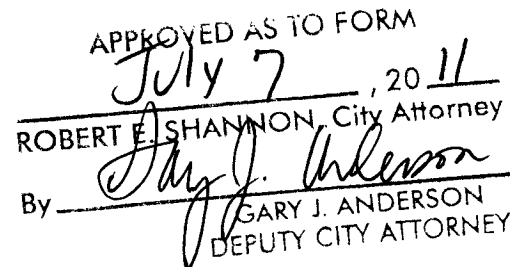 APPROVED AS TO FORM
July 7, 20 11
ROBERT E. SHANNON, City Attorney
By Gary J. Anderson
GARY J. ANDERSON
DEPUTY CITY ATTORNEY